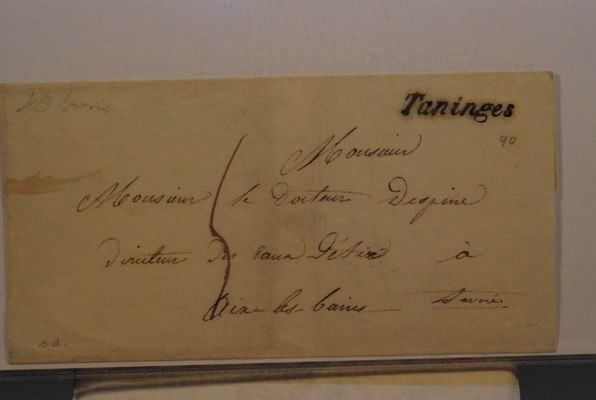 Taninges
40
Monsieur
Monsieur le Docteur Despine
directeur des eaux d'Aix à
Aix les bains Savoie